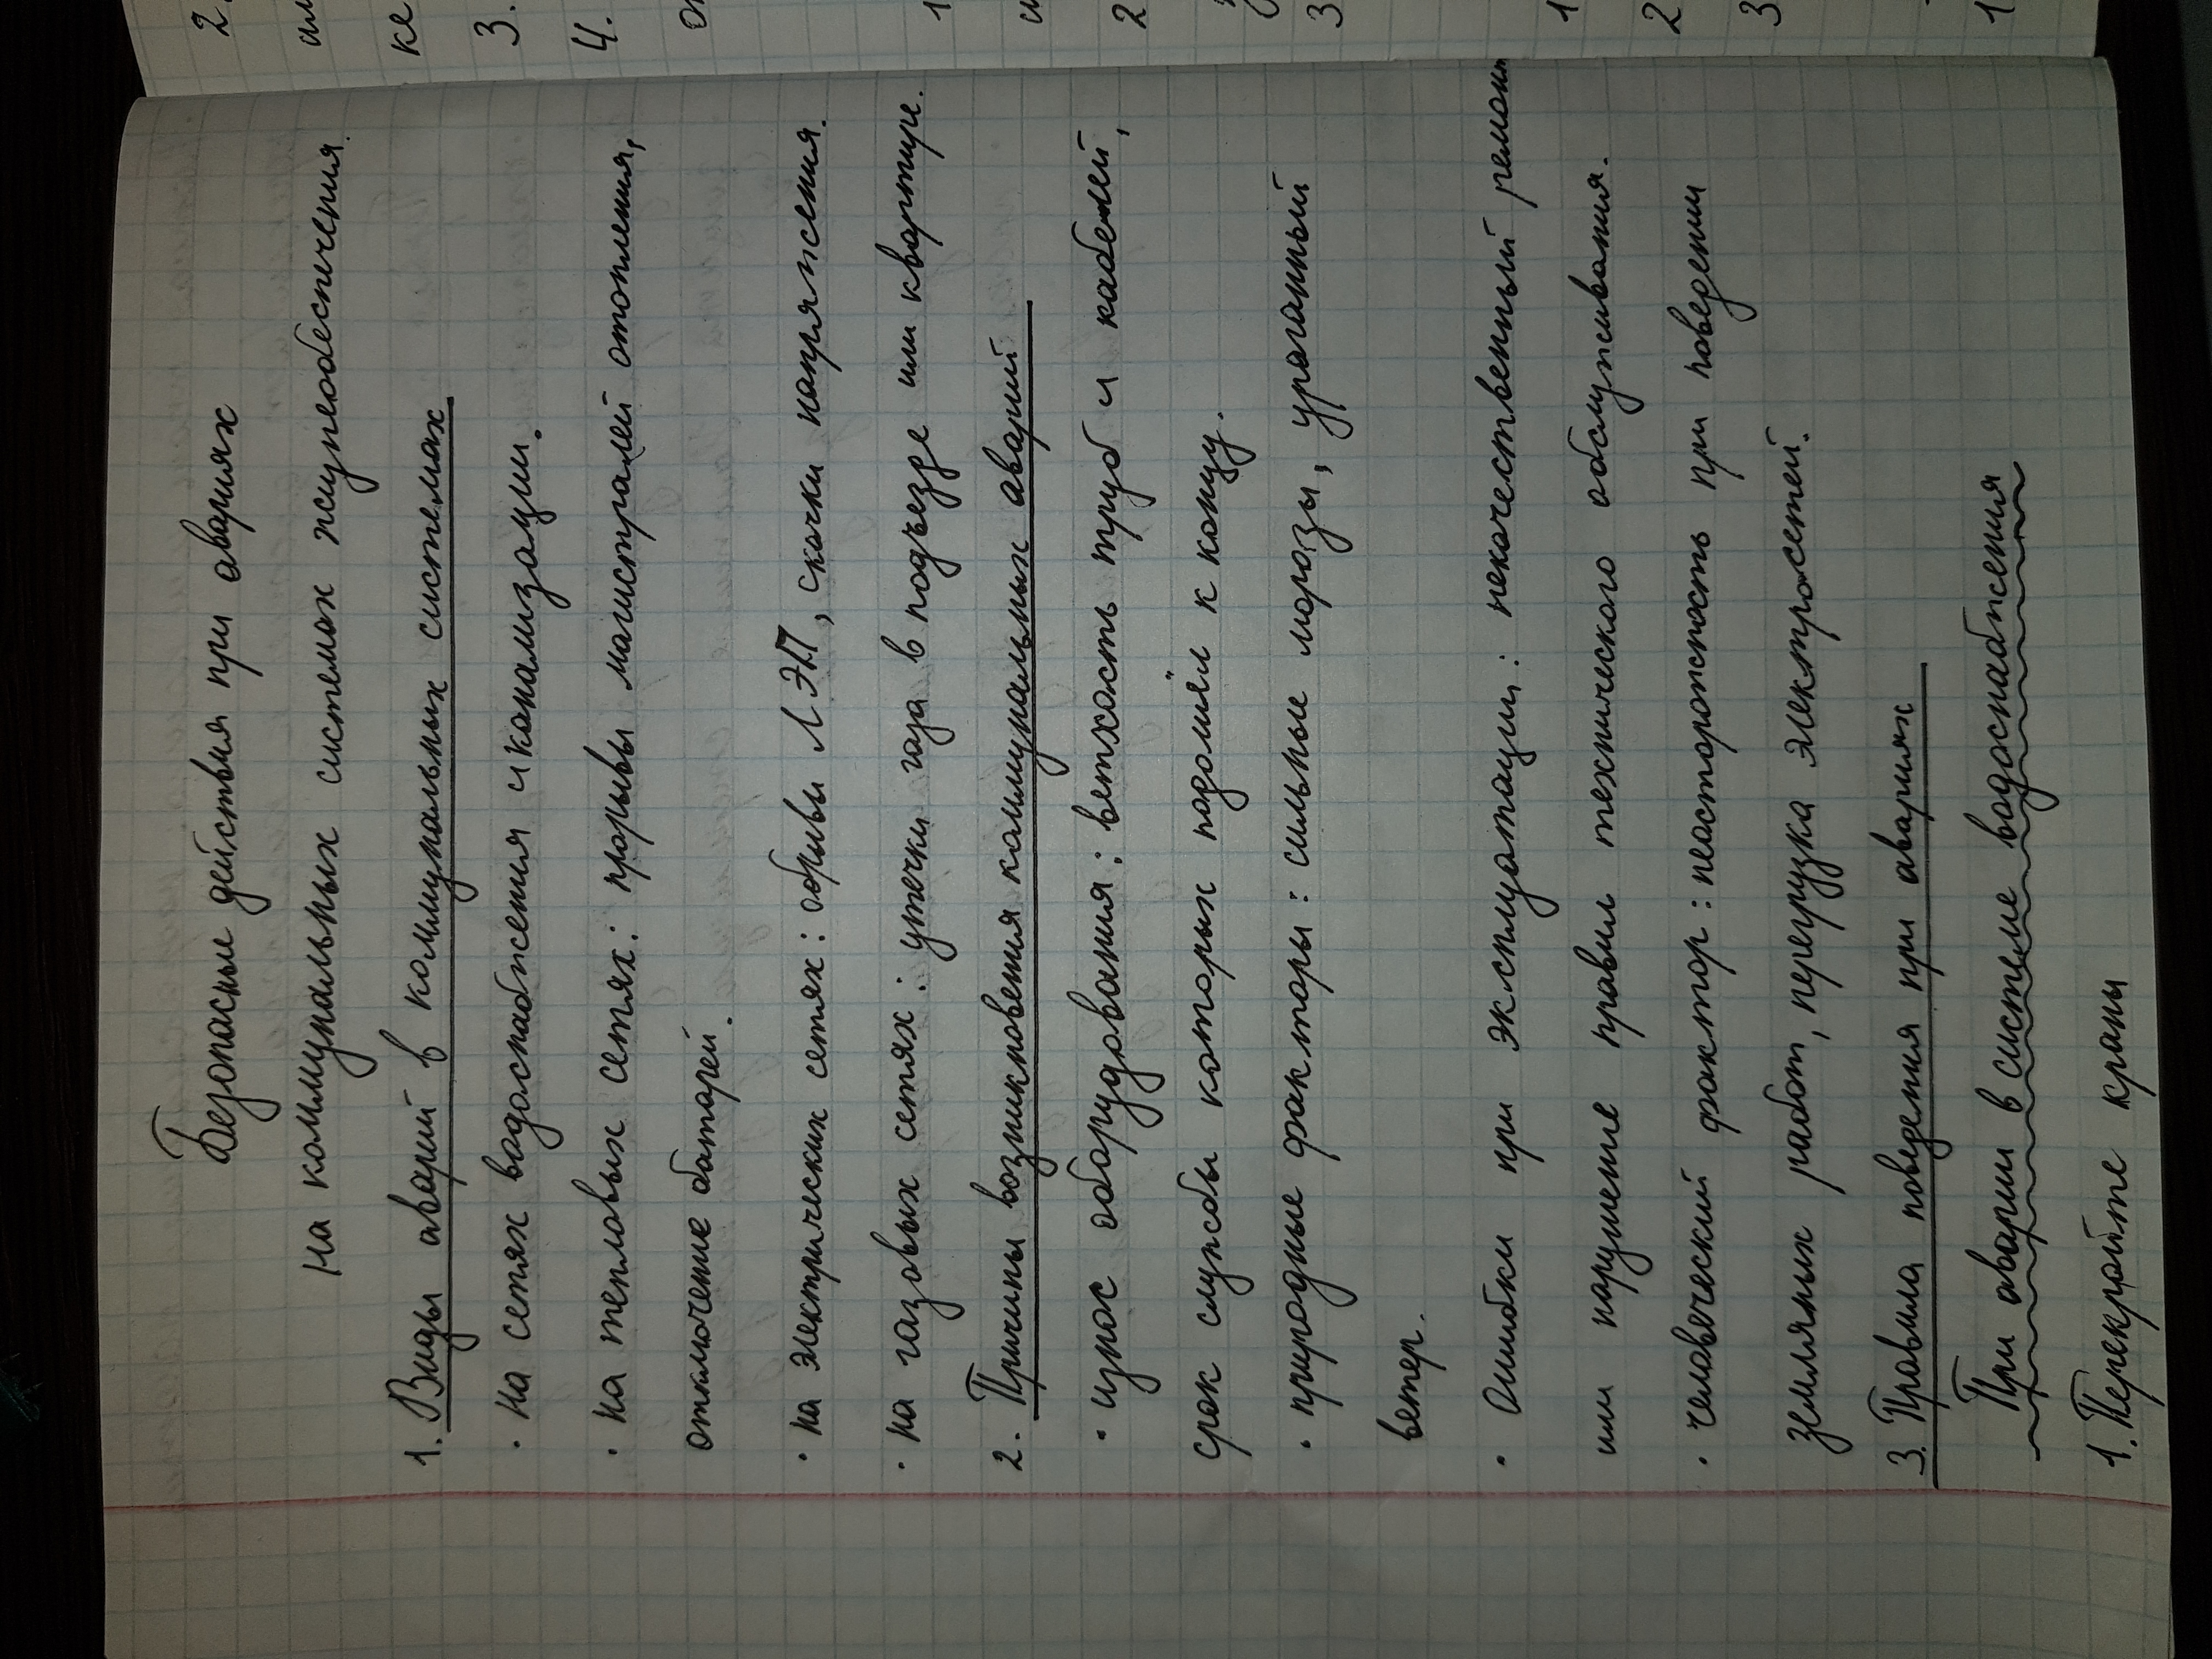 Безопасные действия при авариях
на коммунальных системах жизнеобеспечения.
1. Виды аварий в коммунальных системах
· на сетях водоснабжения и канализации.
· на тепловых сетях: прорывы магистралей отопления,
отключение батарей.
· на электрических сетях: обрывы ЛЭП, скачки напряжения.
· на газовых сетях: утечки газа в подъезде или квартире.
2. Причины возникновения коммунальных аварий
· износ оборудования: ветхость труб и кабелей,
срок службы которых подошёл к концу.
· природные факторы: сильные морозы, ураганный
ветер.
· Ошибки при эксплуатации: некачественный ремонт
или нарушение правил технического обслуживания.
· человеческий фактор: неосторожность при поведении
земляных работ, перегрузка электросетей.
3. Правила поведения при авариях
При аварии в системе водоснабжения
1. Перекройте краны
2.
ке
3.
4.
1
2
3
1
2
3
1